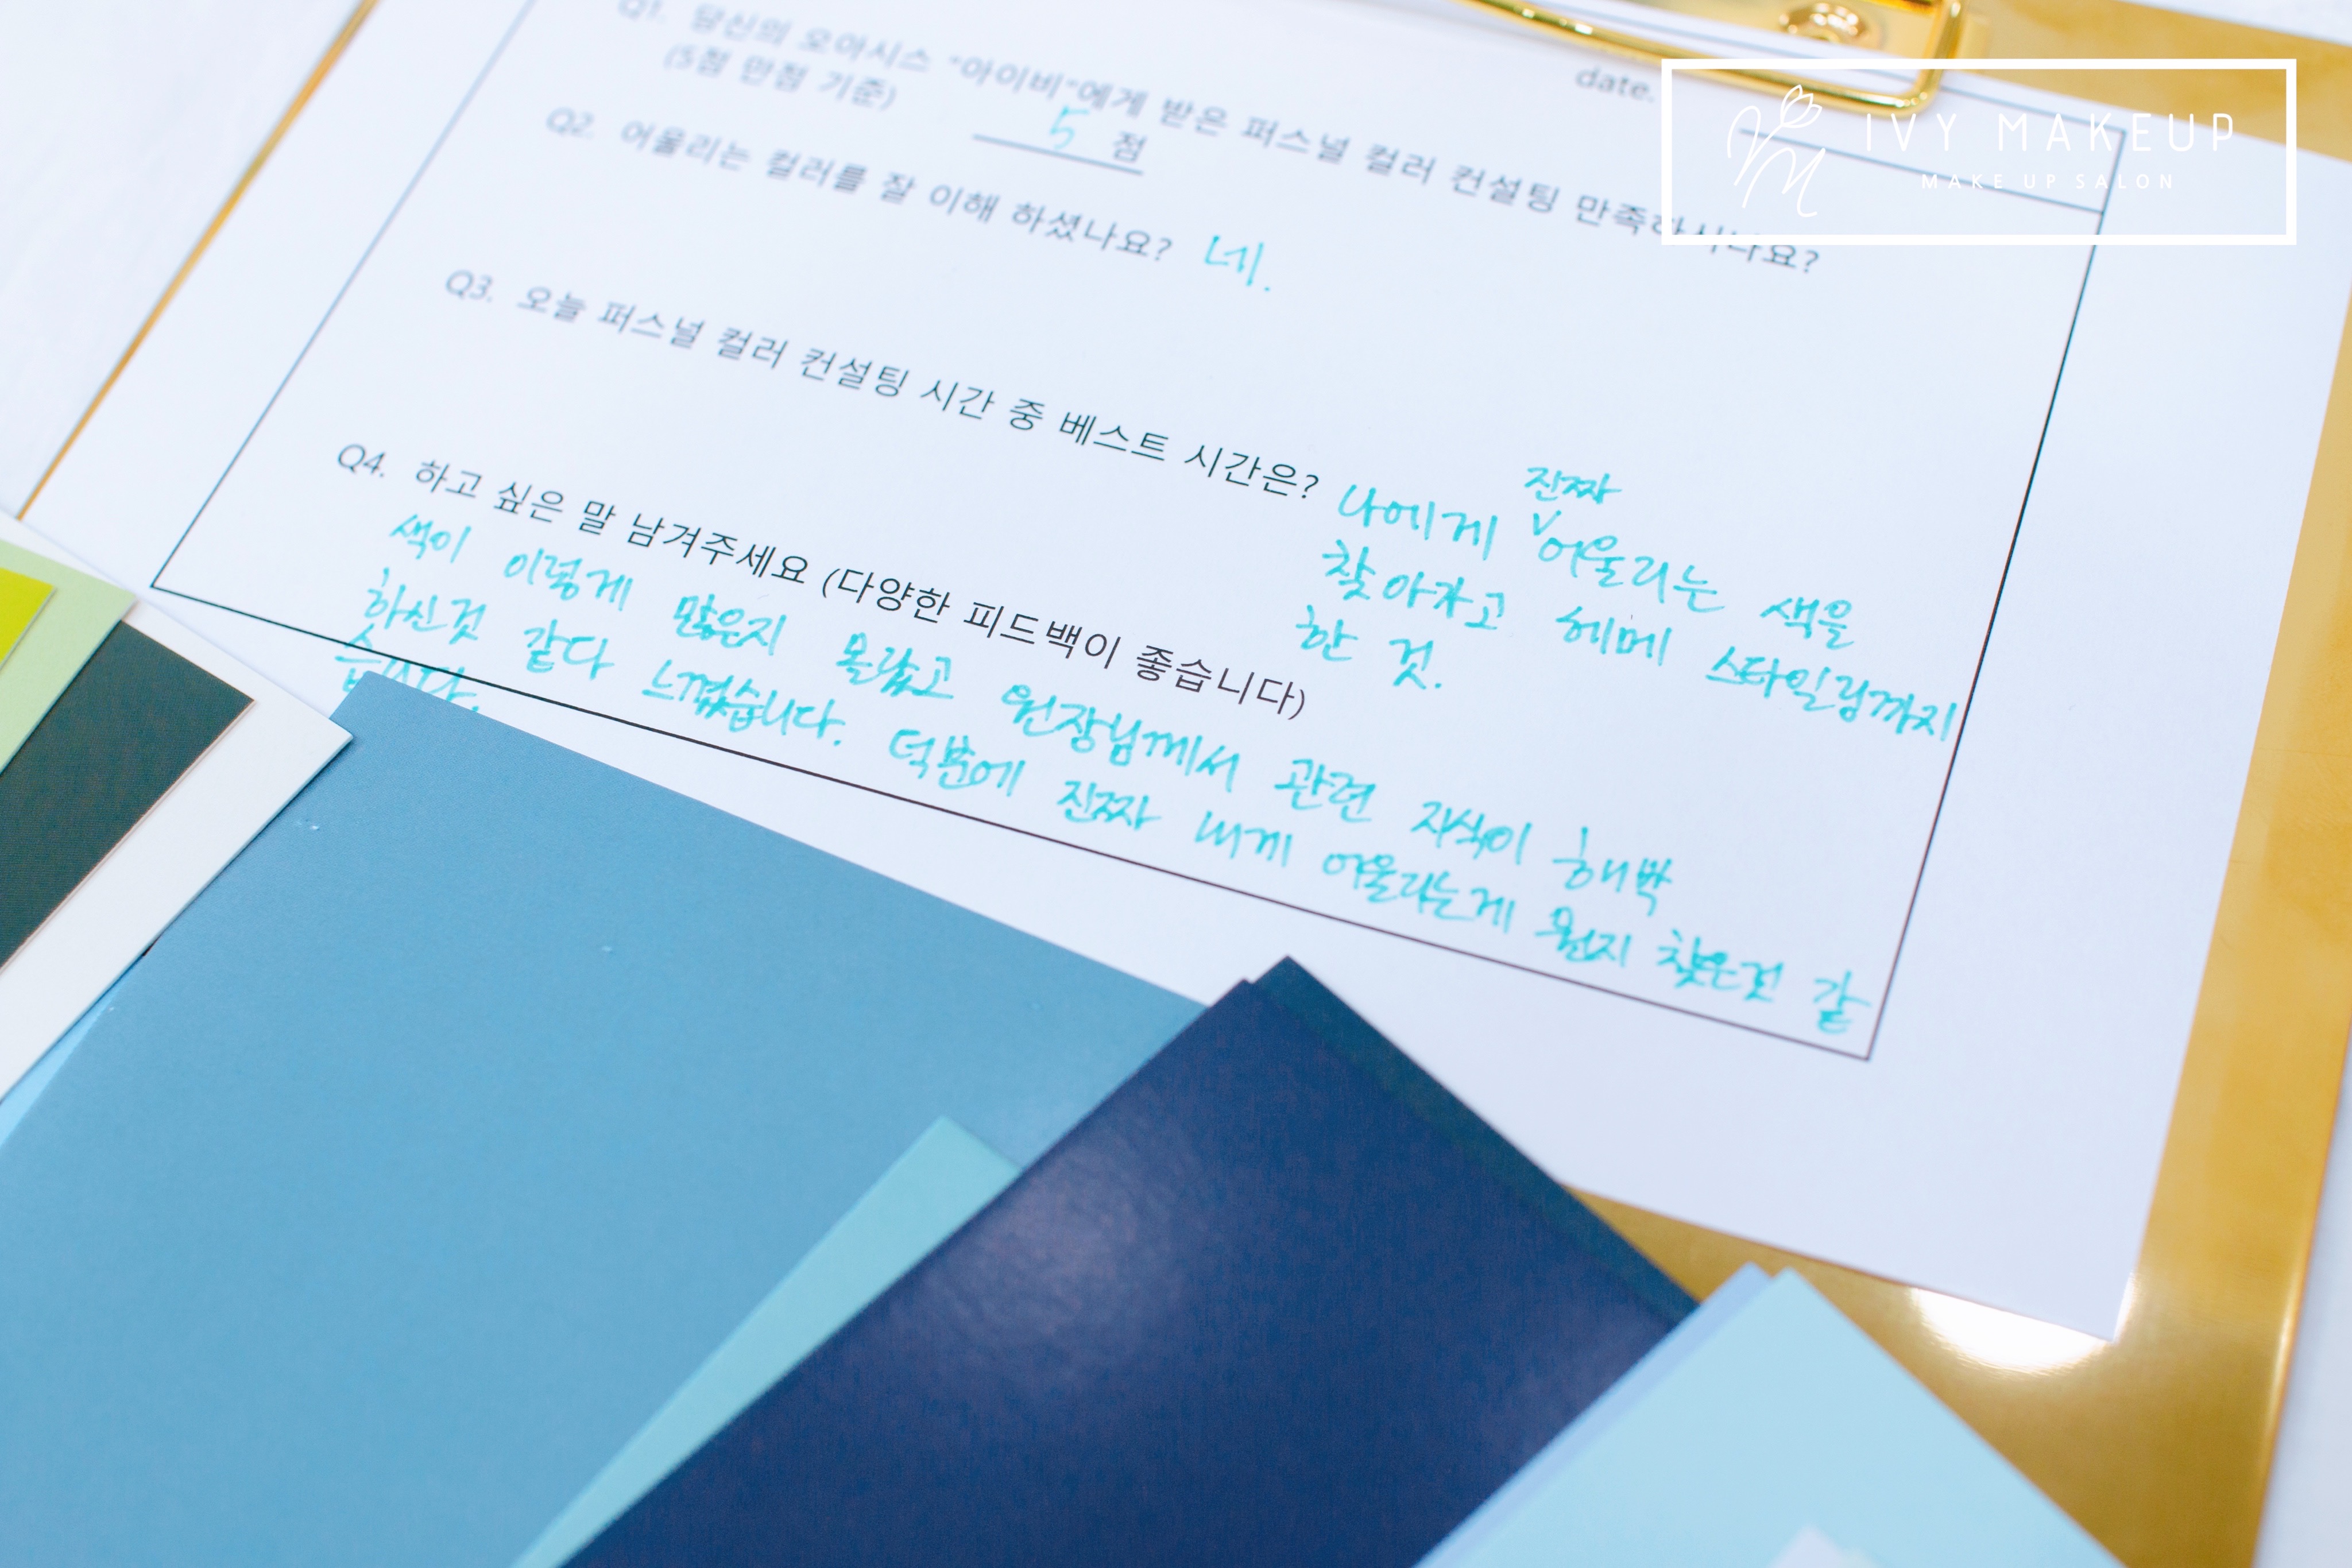 date.
IVY MAKEUP
MAKE UP SALON
Q1. 당신의 오아시스 "아이비"에게 받은 퍼스널 컬러 컨설팅 만족하시나요?
(5점 만점 기준)
5 점
Q2. 어울리는 컬러를 잘 이해 하셨나요? 네.
Q3. 오늘 퍼스널 컬러 컨설팅 시간 중 베스트 시간은?
진짜
나에게 ∨어울리는 색을
찾아가고 헤메 스타일링까지
한 것.
Q4. 하고 싶은 말 남겨주세요 (다양한 피드백이 좋습니다)
색이 이렇게 많은지 몰랐고 원장님께서 관련 지식이 해박
하신것 같다 느꼈습니다. 덕분에 진짜 내게 어울리는게 뭔지 찾은것 같
습니다.